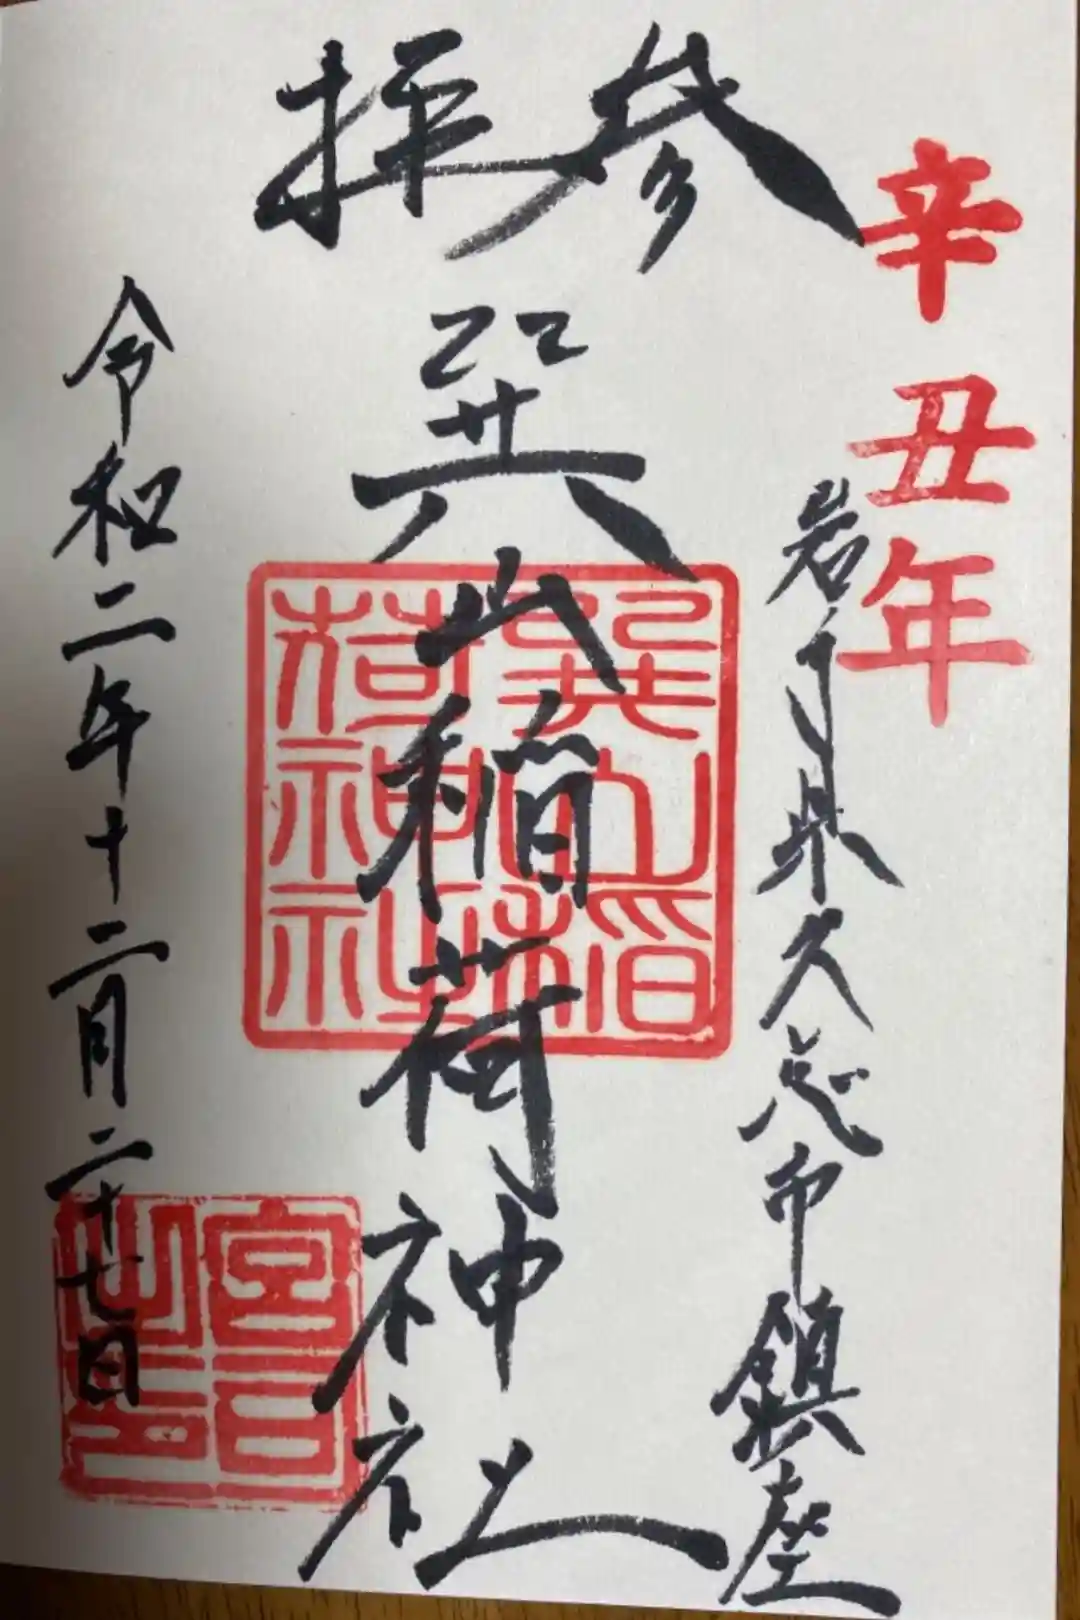 辛丑年
岩手県久慈市鎮座
参拝
巽山稲荷神社
巽山稲荷神社
令和二年十二月二十七日
宮司之印